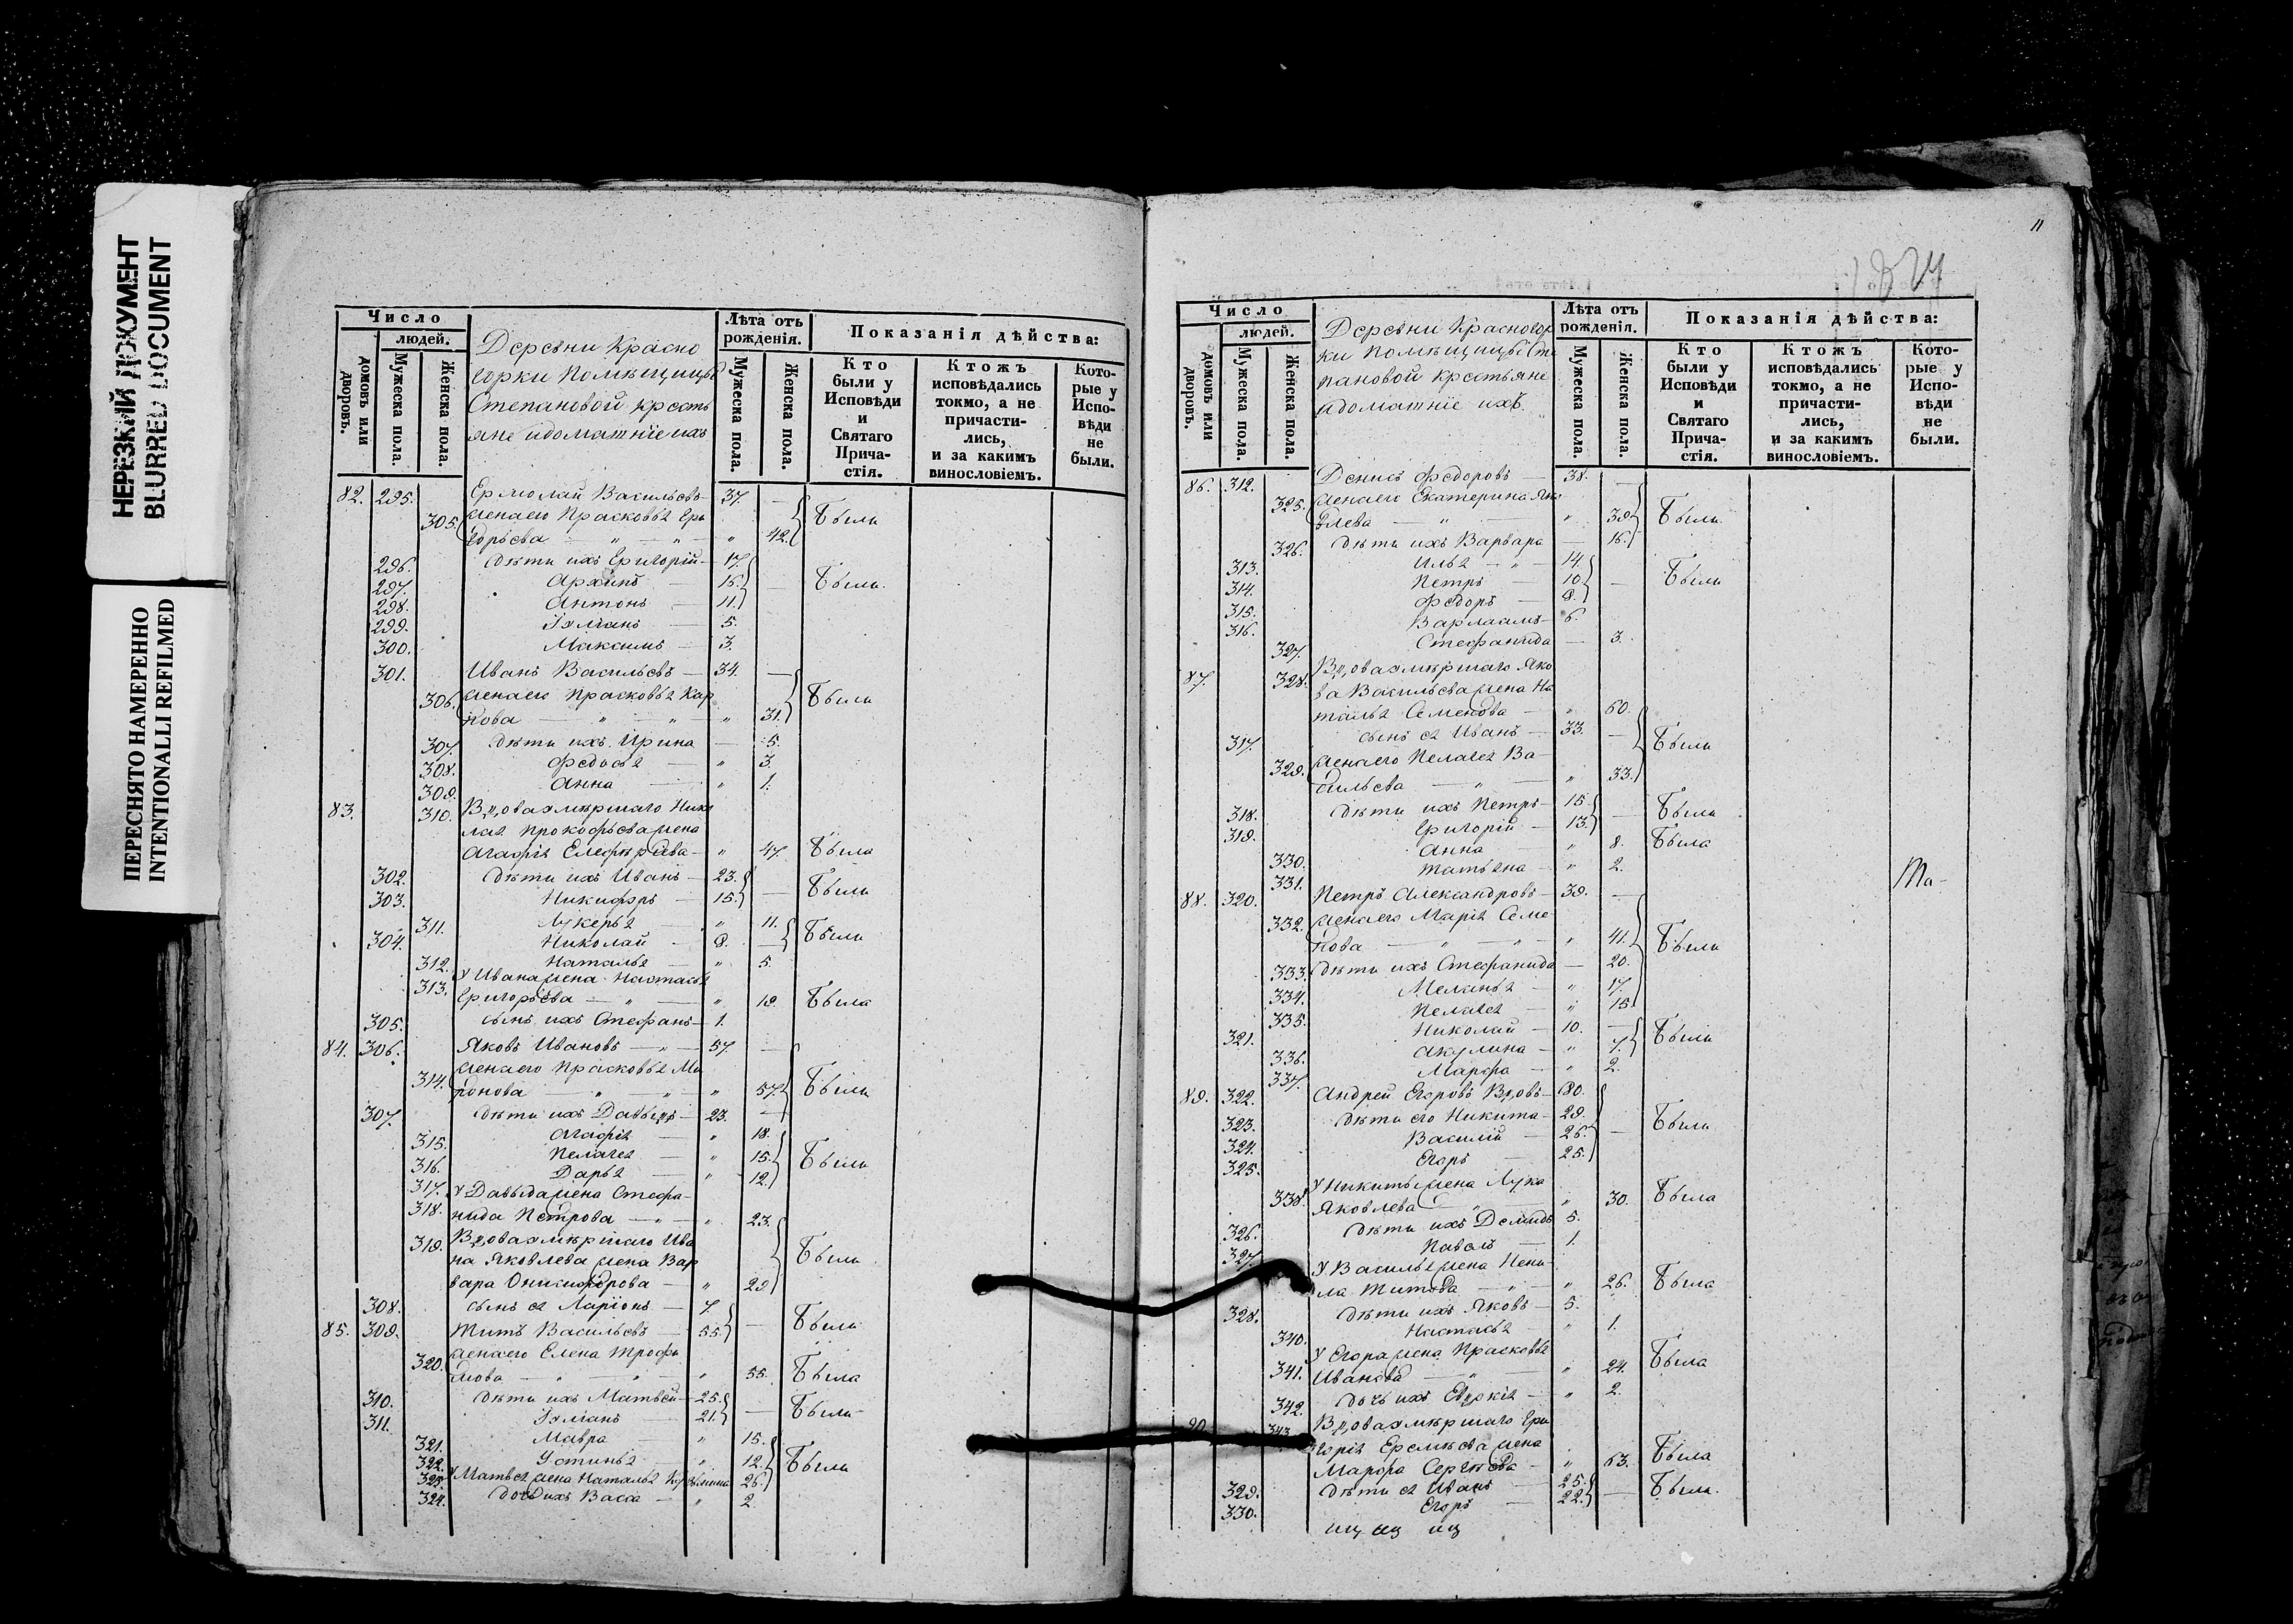 НЕРЕЗКИЙ ДОКУМЕНТ
BLURRED DOCUMENT
ПЕРЕСНЯТО НАМЕРЕННО
INTENTIONALLI REFILMED
Число
людей.
домовъ или дворовъ.
Мужеска пола.
Женска пола.
Деревни Красно
горки Помѣщицы
Степановой кресть
яне идомашніе ихъ
Лѣта отъ рожденія.
Мужеска пола.
Женска пола.
Показанія дѣйства:
Кто были у Исповѣди и Святаго Причастія.
Ктожъ исповѣдались токмо, а не причастились, и за какимъ винословіемъ.
Которые у Исповѣди не были.
82. 295. Ермолай Васильевъ 37. —
305. Жена его Прасковья Гри
горьева — " — " 42. Были
296. Дѣти ихъ Григорій 17.
297. Архипъ 15. — Были
298. Антонъ 11.
299. Іуліанъ 5.
300. Максимъ 3.
301. Иванъ Васильевъ 34. —
306. Жена его Прасковья Кар
пова — " — " 31. Были
307. Дѣти ихъ Ирина — 5.
308. Федосья " 3.
309. Анна " 1.
83. 310. Вдова умершаго Нико
лая Прокофьева жена
Агафія Елеферьева " 47. Была
302. Дѣти ихъ Иванъ 23. — Были
303. Никифоръ 15.
311. Лукерья " 11. Были
304. Николай 8. —
312. Наталья " 5.
313. У Ивана жена Настасья
Григорьева — " — " 19. Была
305. сынъ ихъ Стефанъ 1.
84. 306. Яковъ Ивановъ — " 57. —
314. Жена его Прасковья Ми
ронова — " — " 57. Были
307. Дѣти ихъ Давыдъ 23. —
315. Агафія " 18.
316. Пелагея " 15. Были
317. Дарья " 12.
318. У Давыда жена Стефа-
нида Петрова — " — " 23.
319. Вдова умершаго Ива
на Яковлева жена Вар
вара Оникифорова " 29 Были
308. сынъ ея Ларіонъ 7.
85. 309. Титъ Васильевъ 55. — Были
320. Жена его Елена Трофи
мова — " — " 55. Была
310. Дѣти ихъ Матвей 25. — Были
311. Іуліанъ 21.
321. Мавра " 15.
322. Устинья " 12. Были
323. У Матвея жена Наталья Кузьмина 26.
324. Дочь ихъ Васса " 2.
11
Число
людей.
домовъ или дворовъ.
Мужеска пола.
Женска пола.
Деревни Красногор
ки помѣщицы Сте
пановой крестьяне
идомашніе ихъ.
Лѣта отъ рожденія.
Мужеска пола.
Женска пола.
Показанія дѣйства:
Кто были у Исповѣди и Святаго Причастія.
Ктожъ исповѣдались токмо, а не причастились, и за какимъ винословіемъ.
Которые у Исповѣди не были.
86. 312. Денисъ Федоровъ 38. —
325. Жена его Екатерина Яко
влева — " — " 39. Были
326. Дѣти ихъ Варвара — 16.
313. Илья — " 14.
314. Петръ 10. — Были
315. Федоръ 8.
316. Варлаамъ 6.
327. Стефанида — 3.
87. 328. Вдова умершаго Яко
ва Васильева жена На
талья Семенова " 60.
317. сынъ ея Иванъ 33. — Были
329. Жена его Пелагея Ва-
сильева — " — " 33.
318. Дѣти ихъ Петръ 15. — Были
319. Григорій 13.
330. Анна " 8. Была
331. Татьяна " 2.
Ма-
88. 320. Петръ Александровъ 39. —
332. Жена его Марія Семе-
нова — " — " 41. Были
333. Дѣти ихъ Стефанида — 20.
334. Меланья " 17.
335. Пелагея " 15.
321. Николай 10. — Были
336. Акулина " 7.
337. Марфа " 2.
89. 322. Андрей Егоровъ Вдовъ 80.
323. Дѣти его Никита 29. Были
324. Василій 26. —
325. Егоръ 25.
338. У Никиты жена Лукія
Яковлева — " " 30. Была
326. Дѣти ихъ Демидъ 5.
327. Павелъ 1.
У Василья жена Нени
ла Титова — " — " 26. Была
328. Дѣти ихъ Яковъ 5.
340. Настасья " 1.
341. У Егора жена Прасковья
Иванова — " — " 24. Была
342. Дочь ихъ Евдокія " 2.
90. 343. Вдова умершаго Гри
горія Еремѣева жена
Марфа Сергѣева " 63. Была
329. Дѣти ея Иванъ 25. — Были.
330. Егоръ 22.